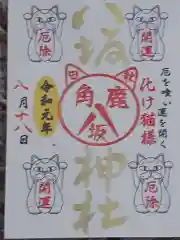 八坂神社
厄除
開運
厄を喰い運を開く
化け猫様
鹿
角
八
坂
令和元年
八月十八日
開運
厄除